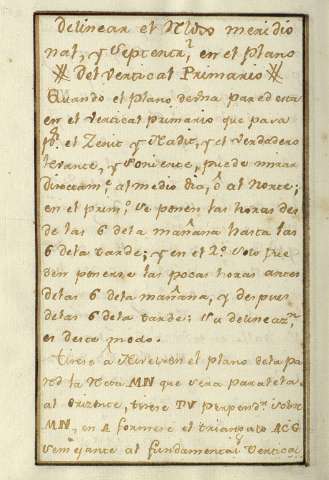 Delinear el Relox meridio
nal, y Septentr.ˡ en el plano
Del Vertical Primario
Quando el plano de una pared esta
en el vertical primario que passa
p.ʳ el Zenit y Nadir, y el verdadero
levante, y Poniente, puede mirar
directam.ᵉ al medio dia, ô al Norte;
en el prim.º se ponen las horas des
de las 6 de la mañana hasta las
6 de la tarde; y en el 2.º solo pue
den ponerse las pocas horas antes
de las 6 de la mañana, y despues
de las 6 de la tarde; Su delineaz.ⁿ
es deste modo.
Tirese â Nivel en el plano de la pa
red la Recta MN que sera paralela
al Orizonte, tirese TV perpend.ʳ sobre
MN, en A formese el triangulo ACG
semejante al fundamental y Vertical